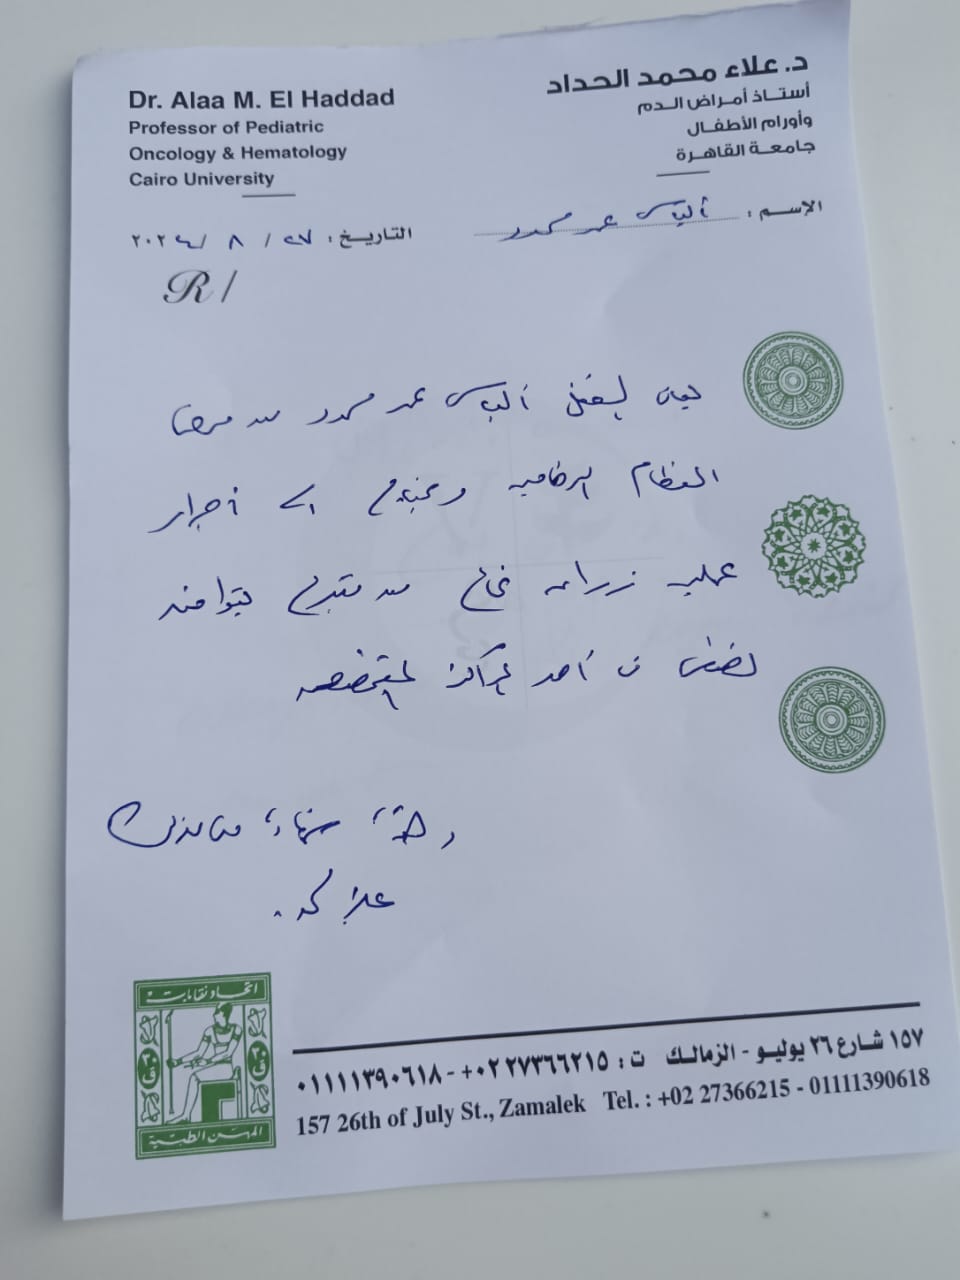 Dr. Alaa M. El Haddad
Professor of Pediatric
Oncology & Hematology
Cairo University
د. علاء محمد الحداد
أستاذ أمراض الدم
وأورام الأطفال
جامعة القاهرة
الإسم : ألياس عمر محمود
التاريخ : ٢٧ / ٨ / ٢٠٢٤
R/
يعانى الطفل ألياس عمر محمود من مرض
العظام الرخامية ويحتاج الى أجراء
عملية زراعة نخاع من متبرع متوافق
نصفى فى أحد المراكز المتخصصة
وهذه شهادة منا بذلك
اتحاد نقابات
المهن الطبية
١٥٧ شارع ٢٦ يوليو - الزمالك ت : ٢٧٣٦٦٢١٥ ٠٢+ - ٠١١١١٣٩٠٦١٨
157 26th of July St., Zamalek Tel. : +02 27366215 - 01111390618